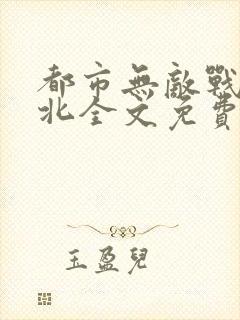 都市無敵戰
北全文免費
玉盈兒